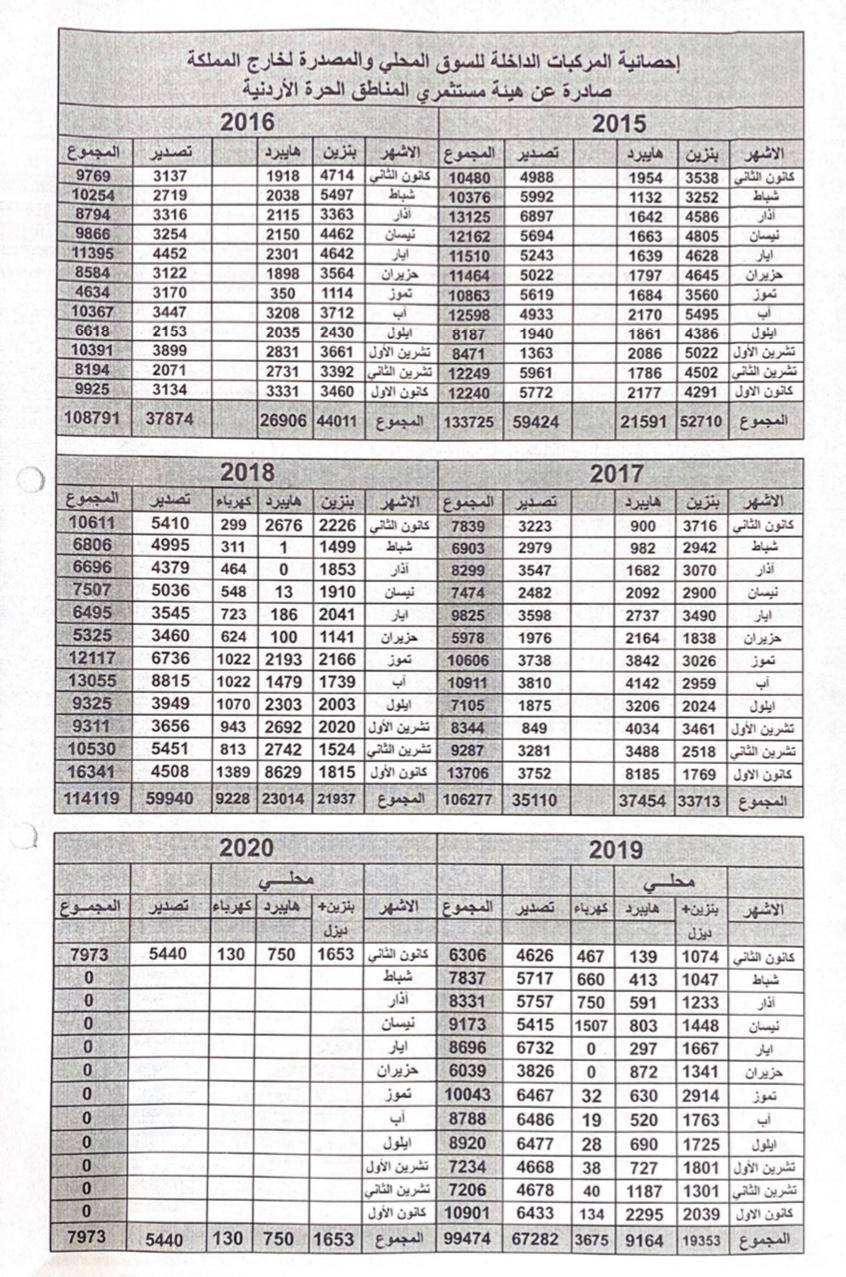 إحصائية المركبات الداخلة للسوق المحلي والمصدرة لخارج المملكة
صادرة عن هيئة مستثمري المناطق الحرة الأردنية
2015 2016
الاشهر بنزين هايبرد تصدير المجموع الاشهر بنزين هايبرد تصدير المجموع
كانون الثاني 3538 1954 4988 10480 كانون الثاني 4714 1918 3137 9769
شباط 3252 1132 5992 10376 شباط 5497 2038 2719 10254
آذار 4586 1642 6897 13125 آذار 3363 2115 3316 8794
نيسان 4805 1663 5694 12162 نيسان 4462 2150 3254 9866
ايار 4628 1639 5243 11510 ايار 4642 2301 4452 11395
حزيران 4645 1797 5022 11464 حزيران 3564 1898 3122 8584
تموز 3560 1684 5619 10863 تموز 1114 350 3170 4634
آب 5495 2170 4933 12598 آب 3712 3208 3447 10367
ايلول 4386 1861 1940 8187 ايلول 2430 2035 2153 6618
تشرين الأول 5022 2086 1363 8471 تشرين الأول 3661 2831 3899 10391
تشرين الثاني 4502 1786 5961 12249 تشرين الثاني 3392 2731 2071 8194
كانون الاول 4291 2177 5772 12240 كانون الاول 3460 3331 3134 9925
المجموع 52710 21591 59424 133725 المجموع 44011 26906 37874 108791
2017 2018
الاشهر بنزين هايبرد تصدير المجموع الاشهر بنزين هايبرد كهرباء تصدير المجموع
كانون الثاني 3716 900 3223 7839 كانون الثاني 2226 2676 299 5410 10611
شباط 2942 982 2979 6903 شباط 1499 1 311 4995 6806
آذار 3070 1682 3547 8299 آذار 1853 0 464 4379 6696
نيسان 2900 2092 2482 7474 نيسان 1910 13 548 5036 7507
ايار 3490 2737 3598 9825 ايار 2041 186 723 3545 6495
حزيران 1838 2164 1976 5978 حزيران 1141 100 624 3460 5325
تموز 3026 3842 3738 10606 تموز 2166 2193 1022 6736 12117
آب 2959 4142 3810 10911 آب 1739 1479 1022 8815 13055
ايلول 2024 3206 1875 7105 ايلول 2003 2303 1070 3949 9325
تشرين الأول 3461 4034 849 8344 تشرين الأول 2020 2692 943 3656 9311
تشرين الثاني 2518 3488 3281 9287 تشرين الثاني 1524 2742 813 5451 10530
كانون الاول 1769 8185 3752 13706 كانون الأول 1815 8629 1389 4508 16341
المجموع 33713 37454 35110 106277 المجموع 21937 23014 9228 59940 114119
2019 2020
محلـــي محلـــي
الاشهر بنزين+ هايبرد كهرباء تصدير المجموع الاشهر بنزين+ هايبرد كهرباء تصدير المجمـوع
ديزل ديزل
كانون الثاني 1074 139 467 4626 6306 كانون الثاني 1653 750 130 5440 7973
شباط 1047 413 660 5717 7837 شباط 0
آذار 1233 591 750 5757 8331 آذار 0
نيسان 1448 803 1507 5415 9173 نيسان 0
ايار 1667 297 0 6732 8696 ايار 0
حزيران 1341 872 0 3826 6039 حزيران 0
تموز 2914 630 32 6467 10043 تموز 0
آب 1763 520 19 6486 8788 آب 0
ايلول 1725 690 28 6477 8920 ايلول 0
تشرين الأول 1801 727 38 4668 7234 تشرين الأول 0
تشرين الثاني 1301 1187 40 4678 7206 تشرين الثاني 0
كانون الاول 2039 2295 134 6433 10901 كانون الأول 0
المجموع 19353 9164 3675 67282 99474 المجموع 1653 750 130 5440 7973